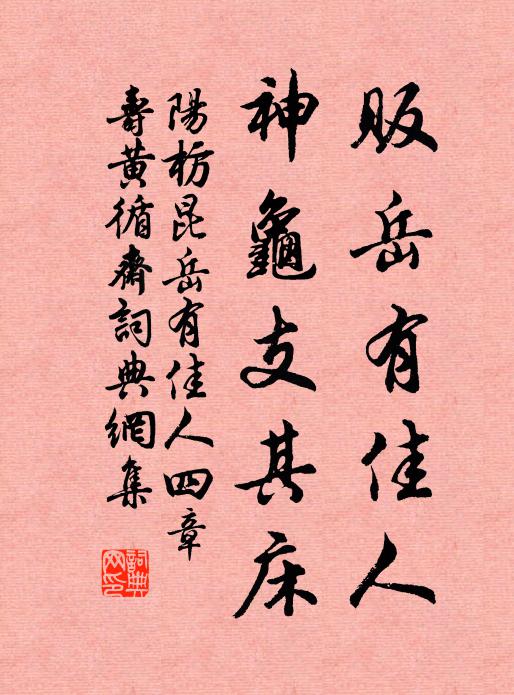 販岳有佳人
神龜支其床
陽枋昆岳有佳人四章
壽黃循齋詞典網集
詞典網印